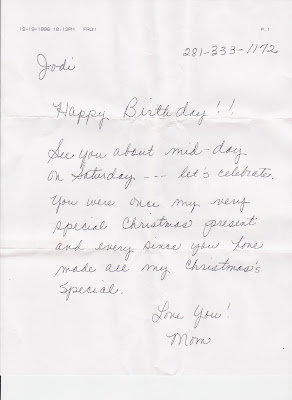 12-19-1996 10:13PM FROM P. 1
281-333-1172
Jodi
Happy Birthday!!
See you about mid-day
on Saturday --- let's celebrate.
You were once my very
special Christmas present
and every since you have
made all my Christmas's
special.
Love You!
Mom